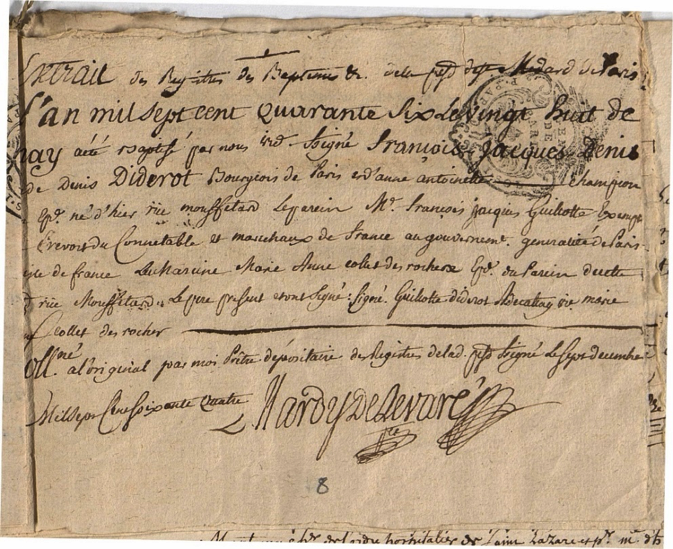 Extrait des Registres des Baptemes &c. de la psse de st Medard de Paris
L'an mil sept cent Quarante Six Le vingt huit de
may a été Baptisé par nous ssd. Soigné François Jacques Denis
de Denis Diderot Bourgeois de Paris et d'anne antoinette Champion
Epe. né d'hier rüe mouffetard Le parein Mr. François Jacques Guillotte Exempt
Prevost du Connetable et marechaux de France au gouvernemt. generalité de Paris
de france La Maraine Marie Anne collet des rochers Epe. du Parein
rüe Mouffetard. Le pere present et ont Signé: Signé. Guillotte diderot marie
collet des rocher
Coll.né a l'original par moi Prêtre dépositaire des Registres de lad. psse Soigné le Sept decembre
Mil Sept Cens Soixante Quatre Hardy De Levaré
8